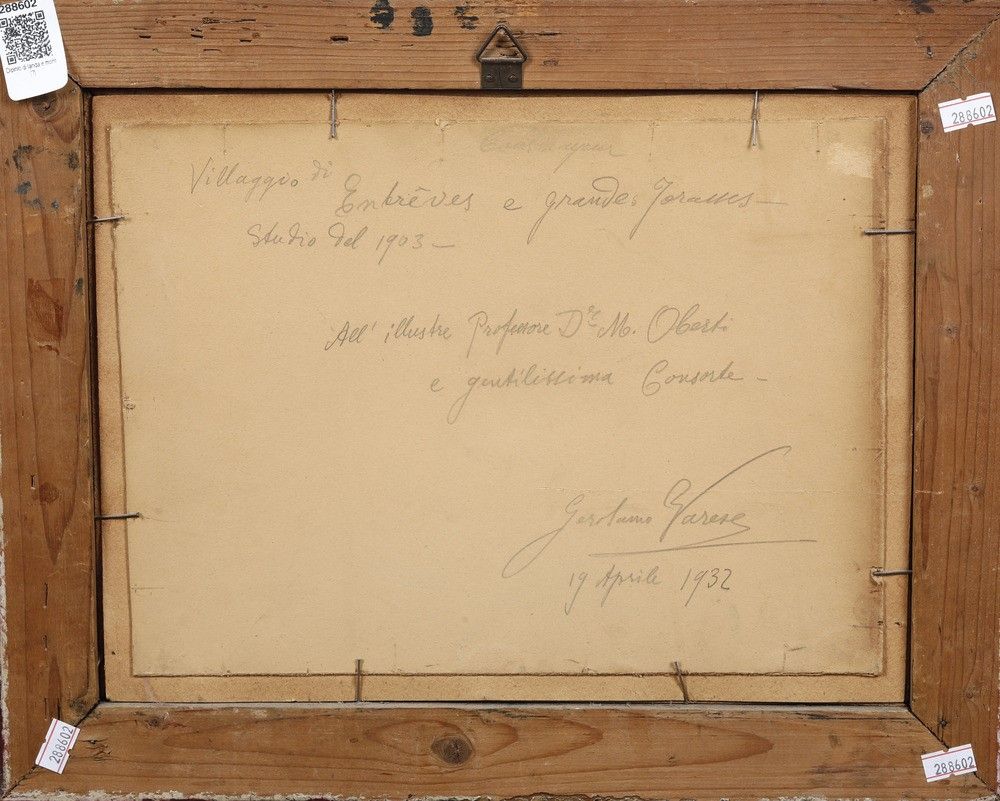 288602
288602
Villaggio di Entrèves e grandes Jorasses —
Studio del 1903 —
All' illustre Professore Dre M. Oberti
e gentilissima Consorte —
Gerolamo Varese
19 Aprile 1932
288602
288602